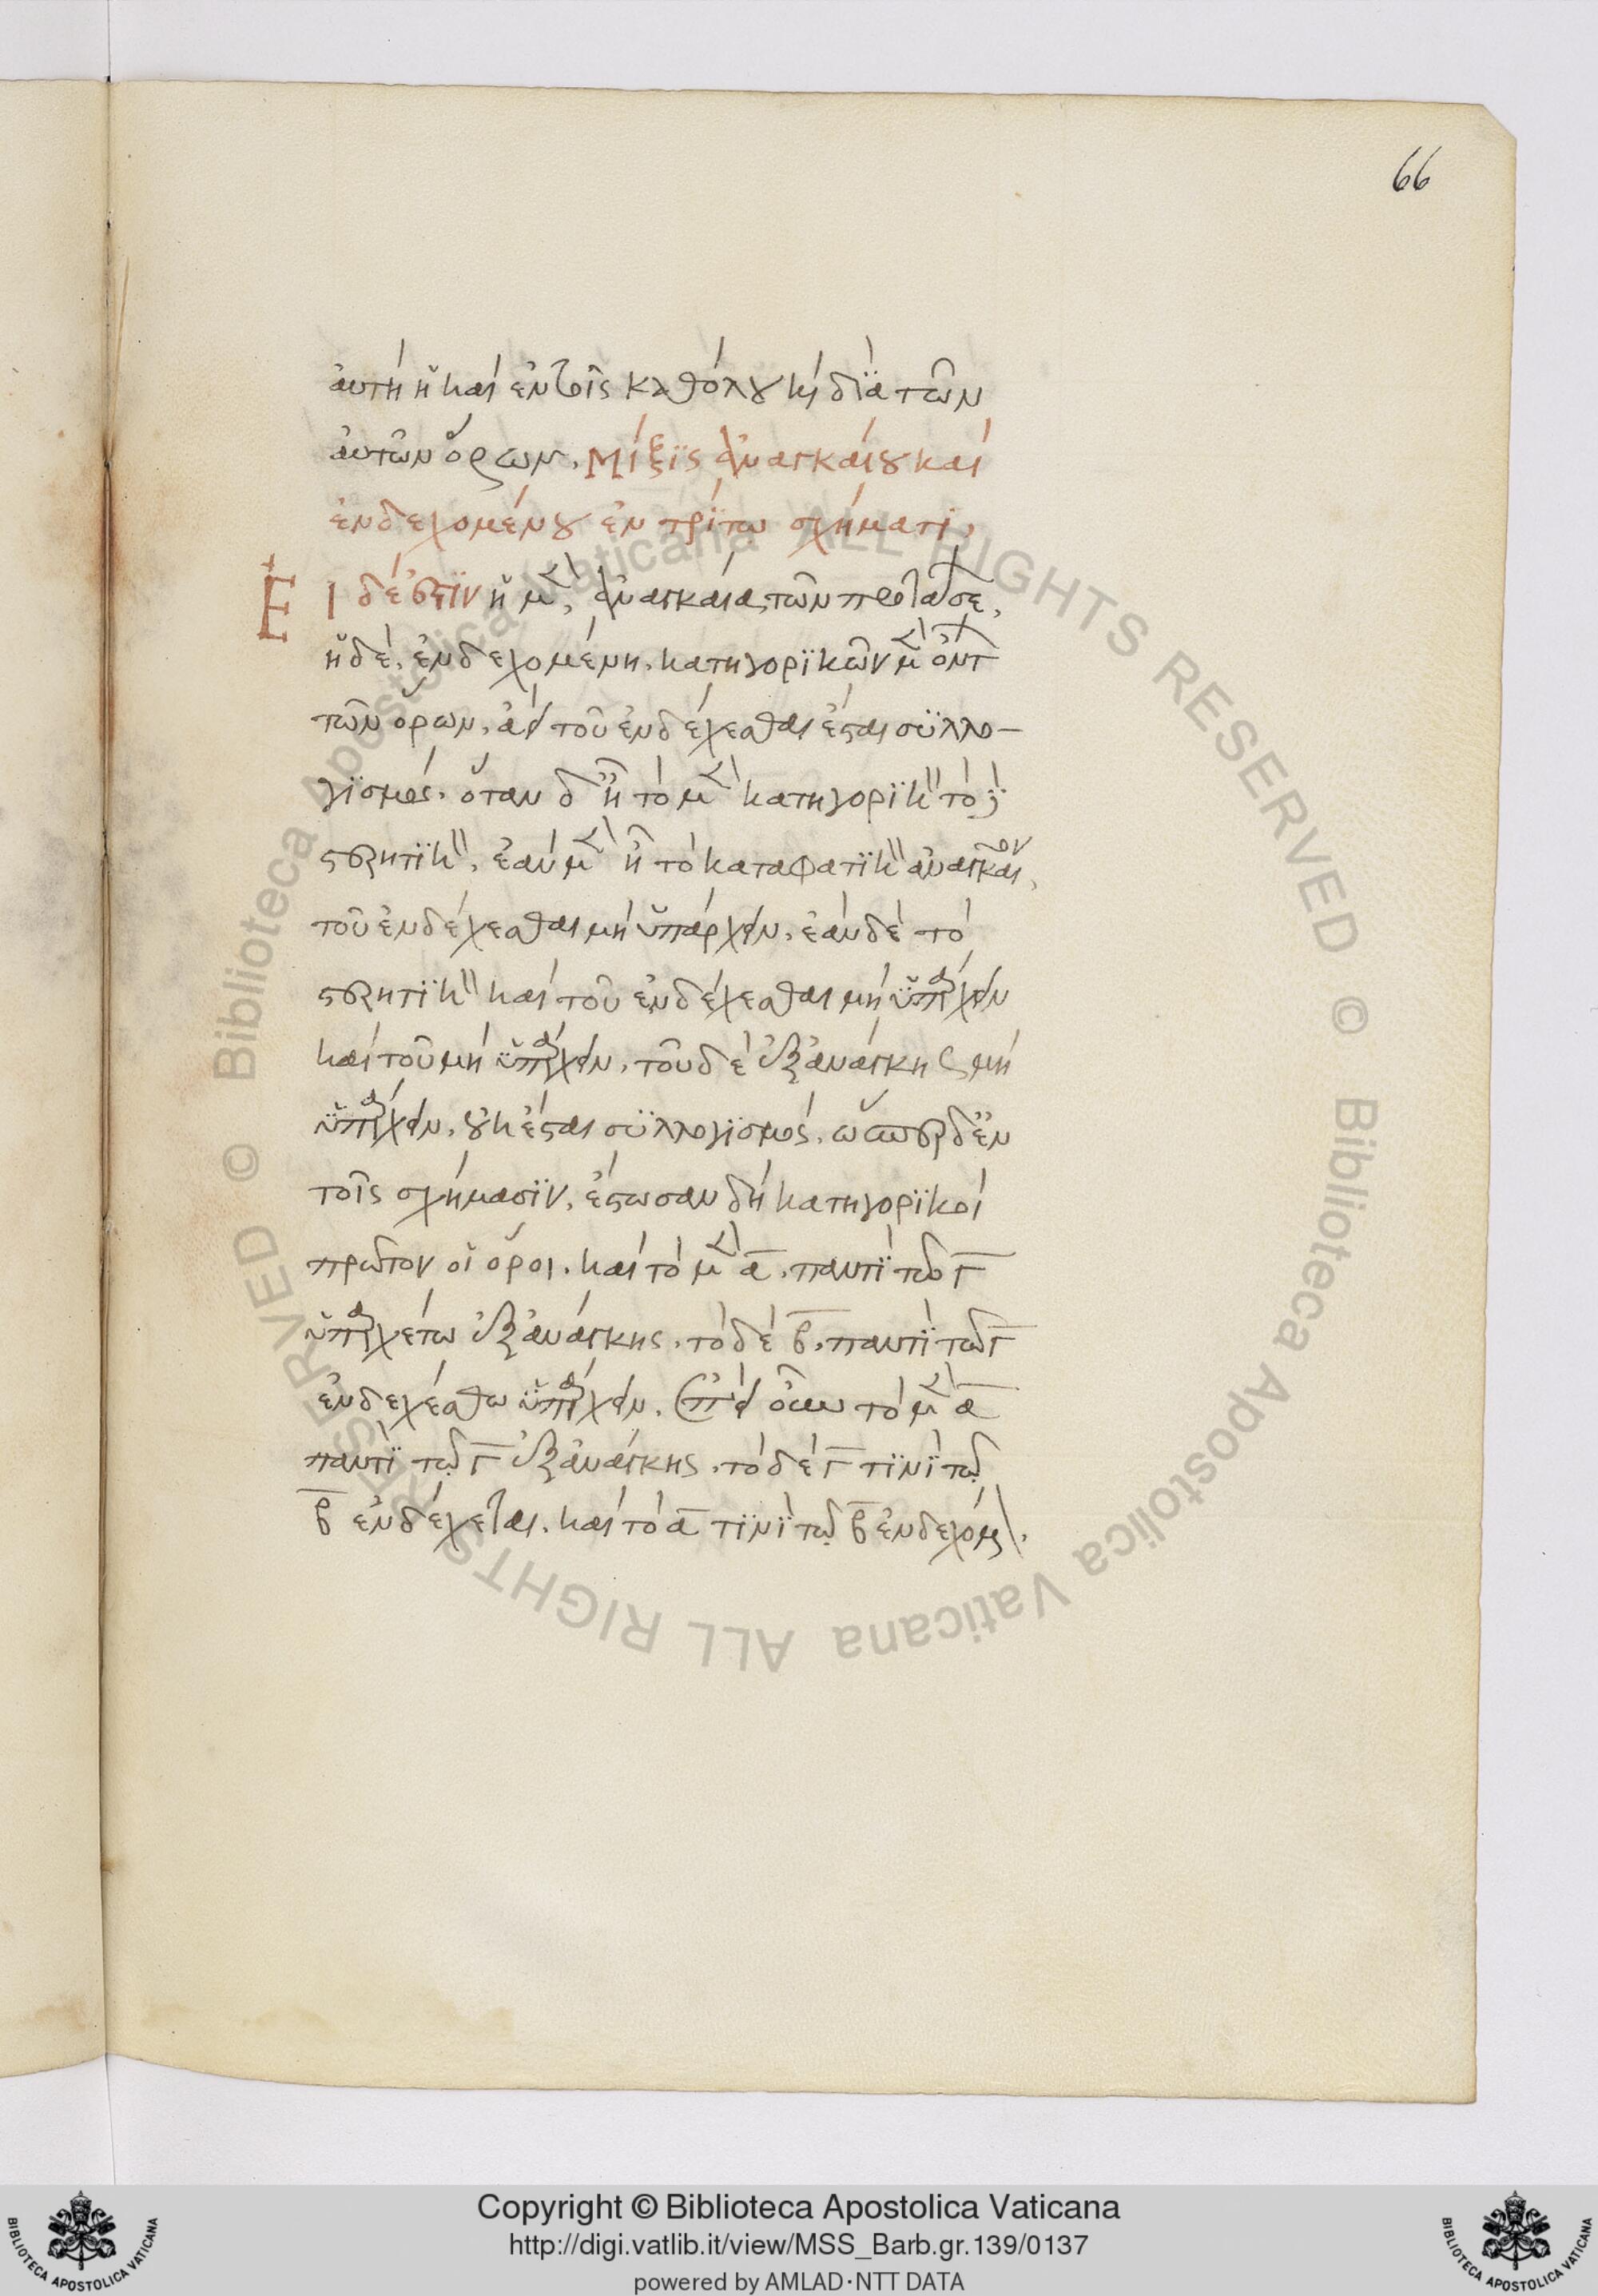 66
ἀυτὴ ἣ καὶ ἐν τοῖς καθόλου κ διὰ τῶν
ἀυτῶν ὅρων. Μίξϊς ἀναγκαίου καὶ
ἐνδεχομένου ἐν τρίτω σχήματι.
Εἰ δέ ἐστϊν ἡ μ, ἀναγκαία τῶν προτάσε,
ἡ δὲ, ἐνδεχομένη. κατηγορϊκῶν μ ὄντ
τῶν ὅρων, ἀεὶ τοῦ ἐνδέχεσθαι ἔσται συλλο-
γϊσμός. ὅταν δ' ἦ τὸ μ κατηγορϊκ τὸ
στερητϊκ, ἐὰν μ ἦ τὸ καταφατϊκ ἀναγκαῖον,
τοῦ ἐνδέχεσθαι μὴ ὑπάρχειν, ἐὰν δὲ τὸ
στερητϊκ καὶ τοῦ ἐνδέχεσθαι μὴ ὑπάρχειν
καὶ τοῦ μὴ ὑπάρχειν. τοῦ δὲ ἐξ ἀνάγκης μὴ
ὑπάρχειν, οὐκ ἔσται συλλογϊσμός. ὥσπερ δ' ἐν
τοῖς σχήμασϊν, ἔστωσαν δὴ κατηγορϊκοὶ
πρῶτον οἱ ὅροι. καὶ τὸ μ α. παντὶ τῶ Γ
ὑπαρχέτω ἐξ ἀνάγκης. τὸ δὲ β. παντὶ τῶ Γ
ἐνδεχέσθω ὑπάρχειν. ἐπεὶ οὖν τὸ μ α
παντὶ τῷ Γ ἐξ ἀνάγκης. τὸ δὲ Γ τϊνὶ τῷ
β ἐνδέχεται. καὶ τὸ α τϊνὶ τῷ β ἐνδεχόμ.
Copyright © Biblioteca Apostolica Vaticana
http://digi.vatlib.it/view/MSS_Barb.gr.139/0137
powered by AMLAD·NTT DATA